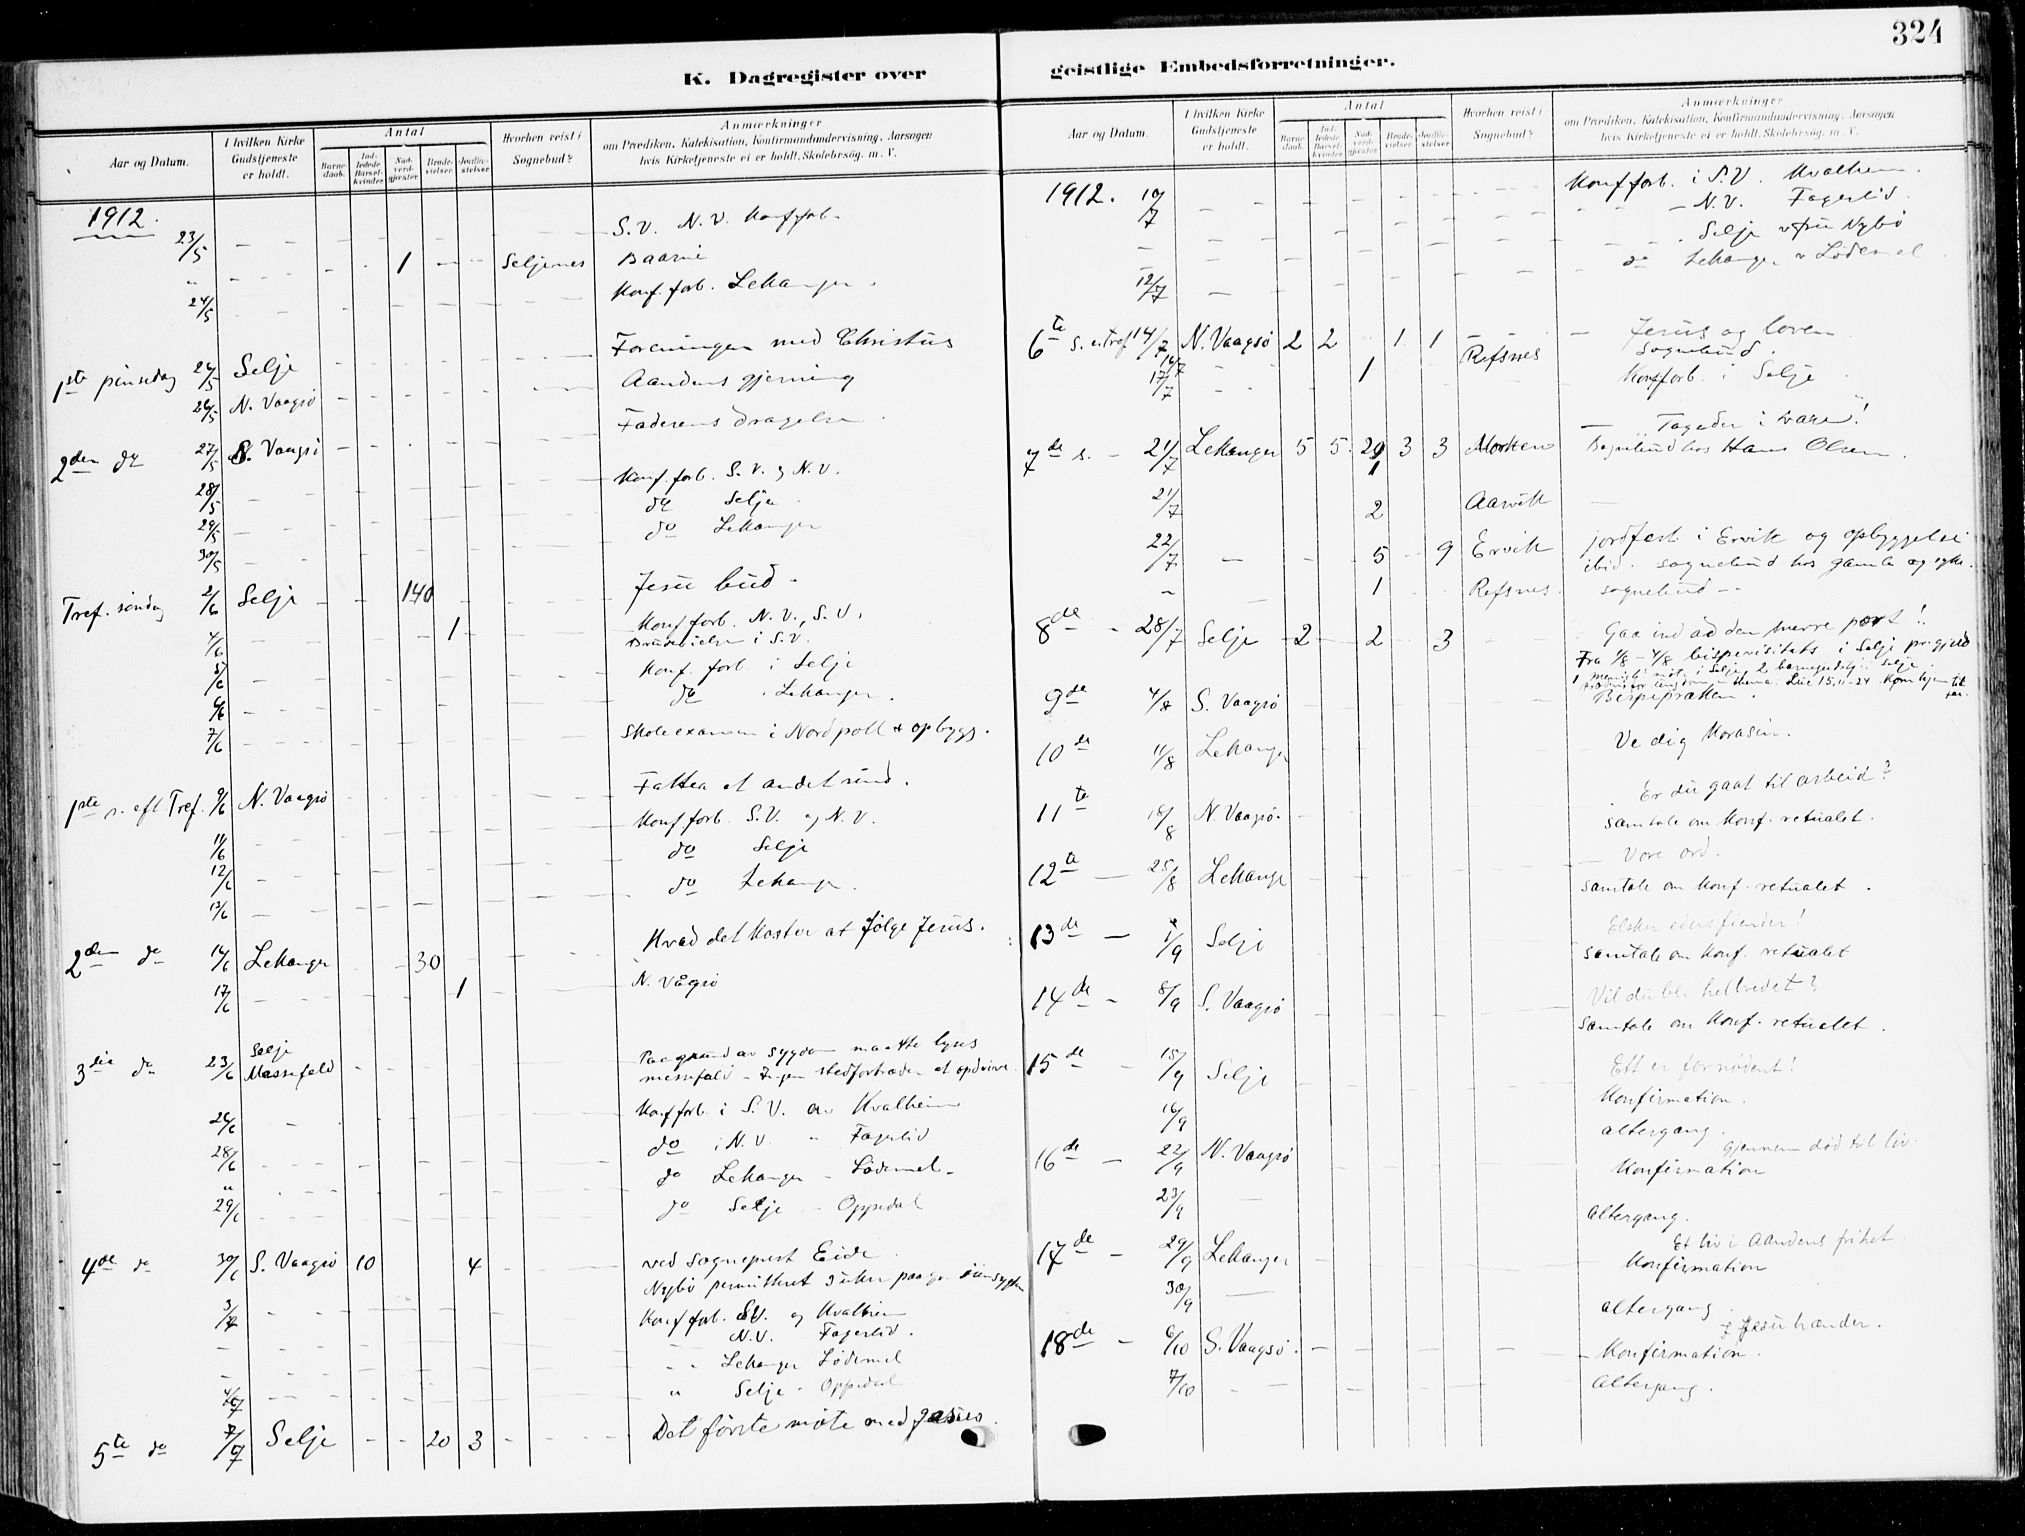 324
K. Dagregister over
geistlige Embedsforretninger.
Aar og Datum.
I hvilken Kirke Gudstjeneste er holdt.
Antal
Barne-daab.
Ind-ledede Barsel-kvinder.
Nad-verd-gjæster.
Brude-vielser.
Jordfæ-stelser.
Hvorhen reist i Sognebud?
Anmærkninger
om Prædiken, Katekisation, Konfirmandundervisning, Aarsagen
hvis Kirketjeneste ei er holdt, Skolebesøg. m. V.
1912.
23/5 S.V. N.V. Konf.forb.
" 1 Seljenes
24/5 Konf.forb. Lekanger.
Foreningen med Christus
1ste pinsedag 26/5 Selje
26/5 N. Vaagsø Aandens gjerning
Faderens dragelse
2den do 27/5 S. Vaagsø
28/5 Konf.forb. S.V. og N.V.
29/5 do Selje
30/5 do Lekanger
Tref. søndag 2/6 Selje 140 Jesu bud
4/6 1 Konf.forb. N.V., S.V.
Brudevielse i S.V.
5/6 Konf. forb. i Selje
6/6 do Lekanger.
7/6 Skoleexamen i Nordpoll & opbygg.
1ste s. eft Tref. 9/6 N. Vaagsø
11/6 Konf forb. S.V. og N.V.
12/6 do Selje
13/6 do Lekanger.
Hvad det koster at følge Jesus.
2den do 16/6 Lekanger 30
17/6 1 N. Vågsø
3die do 23/6 Selje
Messefald
Paa grund av sygdom maatte lyses
messefald - Ingen stedfortræder at opdrive.
26/6 Konf forb. i S.V. av Kvalheim
28/6 do i N.V. " Fagerlid
" do Lekanger - Lødemel
29/6 do Selje - Oppedal
4de do 30/6 S. Vaagsø 10 4 ved sogneprest Eide
3/7 Konf forb. S.V. og Kvalheim
N.V. Fagerlid.
Lekanger Lødemel
4/7 " Selje - Oppedal
5te do 7/7 Selje 20 3 Det første møte med Jesus.
1912. 10/7 Konf forb. i S.V. Kvalheim.
N.V. Fagerlid.
Selje v fru Nybø
12/7 do Lekanger v Lødemel
6te s. e. Tref 14/7 N. Vaagsø 2 2 1 1 Jesus og loven
16/7 1 Refsnes Sognebud.
17/7 Konf forb. i Selje
7de s. - 21/7 Lekanger 5 5 29 3 3
1 Morken Sognebud hos Hans Olsen.
21/7 2 Aarvik
22/7 5 9 Ervik jordfest i Ervik og opbyggelse
ibid. sognebud hos gamle og syke.
1 Refsnes. sognebud
8de - 28/7 Selje 2 2 3 Gaa ind ad den snevre port!
Fra 1/8 - 4/8 bispevisitats i Selje prgjeld
9de 4/8 S. Vaagsø
10de 11/8 Lekanger Ve dig Korasin.
Er du gaat til arbeid?
11te 18/8 N. Vaagsø samtale om konf. ritualet.
Vore ord.
12te 25/8 Lekanger samtale om konf. ritualet.
Elsker eders fiender!
13de 1/9 Selje samtale om konf. ritualet
14de 8/9 S. Vaagsø Vil du bli helbredet?
samtale om konf. ritualet.
15de 15/9 Selje Ett er fornødent!
Konfirmation.
16/9 altergang.
16de 22/9 N. Vaagsø gjennem død til liv.
Konfirmation
23/9 altergang.
17de 29/9 Lekanger Et liv i Aandens frihet.
Konfirmation
30/9 altergang
I Jesu hænder.
18de 6/10 S. Vaagsø. Konfirmation.
7/10 altergang.